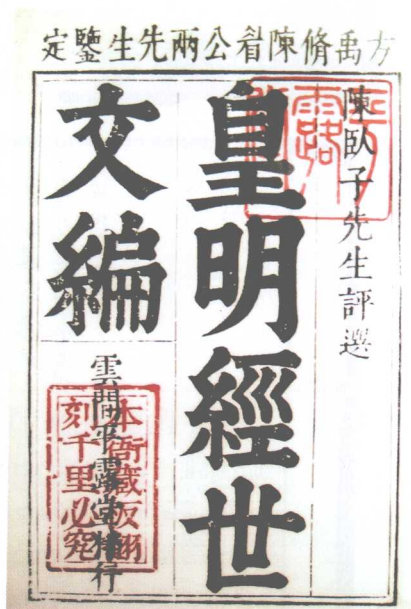 方禹脩陳眉公兩先生鑒定
陳臥子先生評選
皇明經世
文編
雲間平露堂梓行
露
本衙藏板翻
刻千里必究